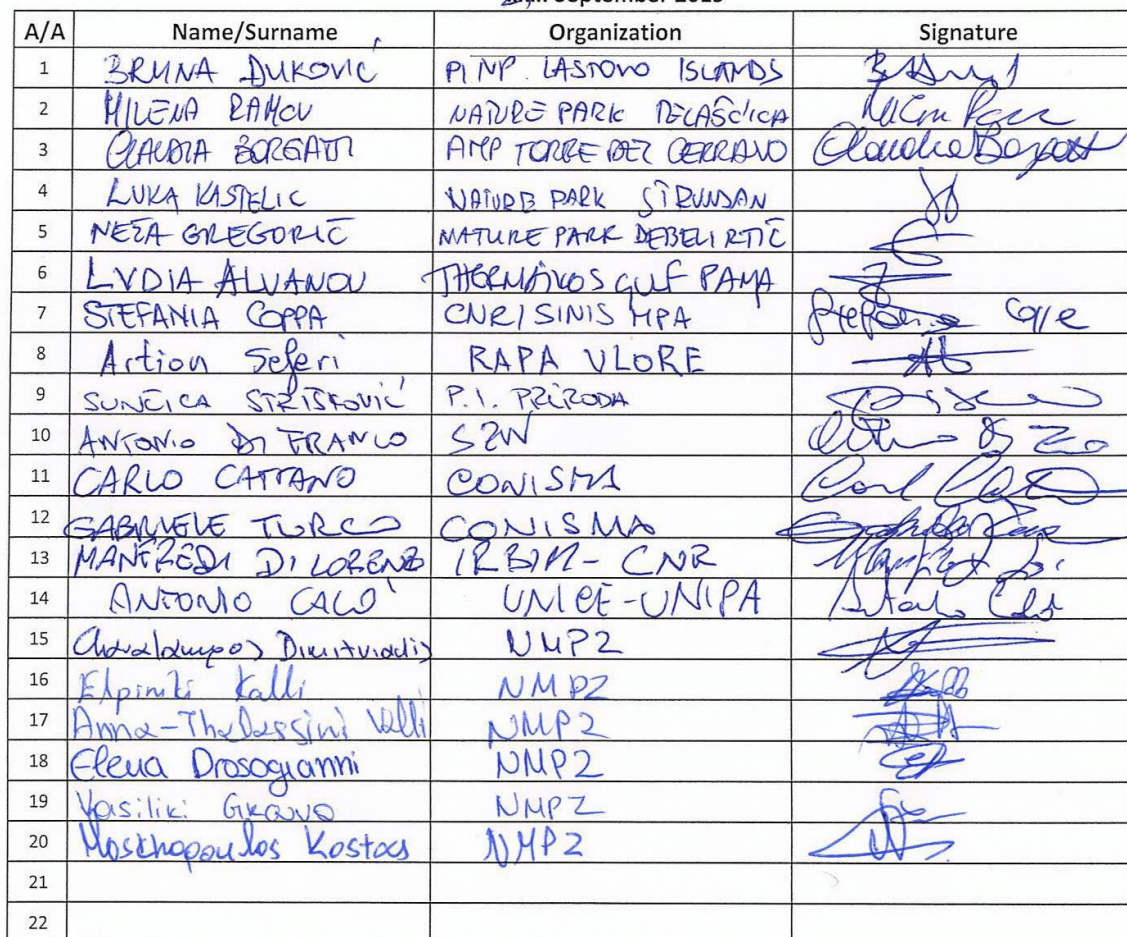 September 2019
A/A Name/Surname Organization Signature
1 BRUNA ĐUKOVIĆ PI NP. LASTOVO ISLANDS
2 MILENA RAMOV NATURE PARK TELAŠĆICA
3 CLAUDIA BORGATTI AMP TORRE DEL CERRANO
4 LUKA KASTELIC NATURE PARK STRUNJAN
5 NEŽA GREGORIČ NATURE PARK DEBELI RTIČ
6 LYDIA ALVANOU THERMAIKOS GULF PAMA
7 STEFANIA COPPA CNR/SINIS MPA
8 Artion Seferi RAPA VLORE
9 SUNČICA STRIŠKOVIĆ P.I. PRIRODA
10 ANTONIO DI FRANCO SZN
11 CARLO CATTANO CONISMA
12 GABRIELE TURCO CONISMA
13 MANFREDI DI LORENZO IRBIM-CNR
14 ANTONIO CALO' UNICE-UNIPA
15 Charalampos Dimitriadis NMPZ
16 Elpiniki Kalli NMPZ
17 Anna-Thalassini Valli NMPZ
18 Elena Drosogianni NMPZ
19 Vasiliki NMPZ
20 Moschopoulos Kostas NMPZ
21
22